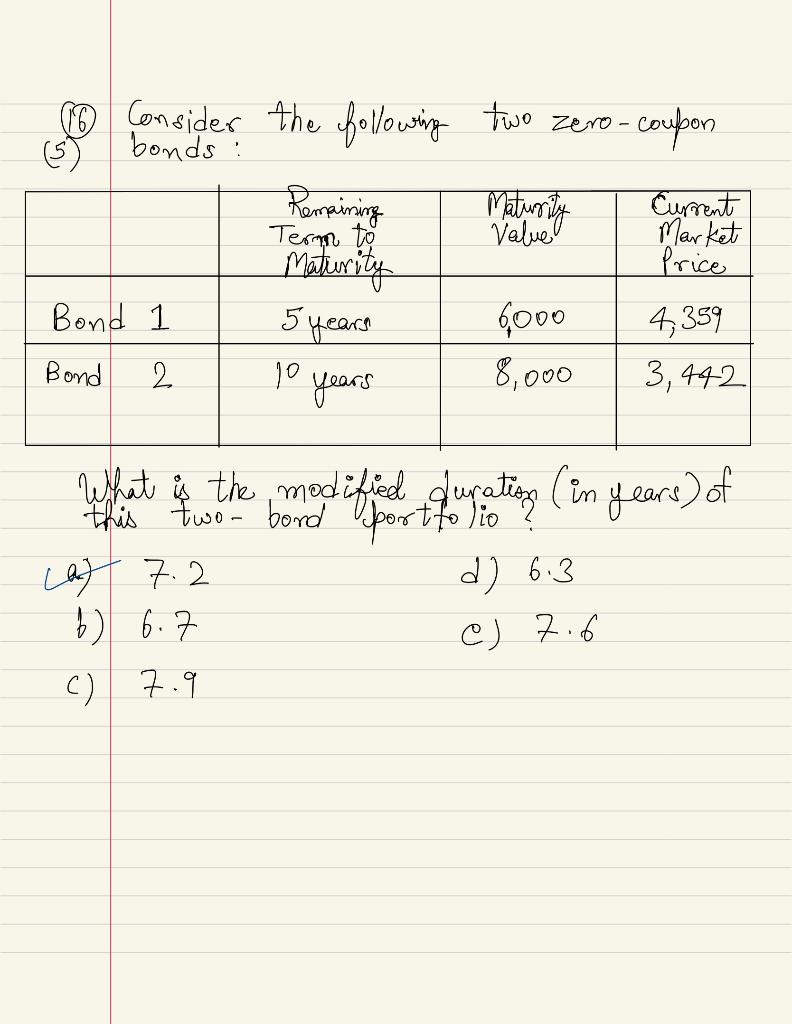 16 Consider the following two zero-coupon
(5) bonds :
Remaining Term to Maturity
Maturity Value
Current Market Price
Bond 1 5 years 6,000 4,359
Bond 2 10 years 8,000 3,442
What is the modified duration (in years) of
this two- bond portfolio ?
a) 7.2 d) 6.3
b) 6.7 e) 7.6
c) 7.9